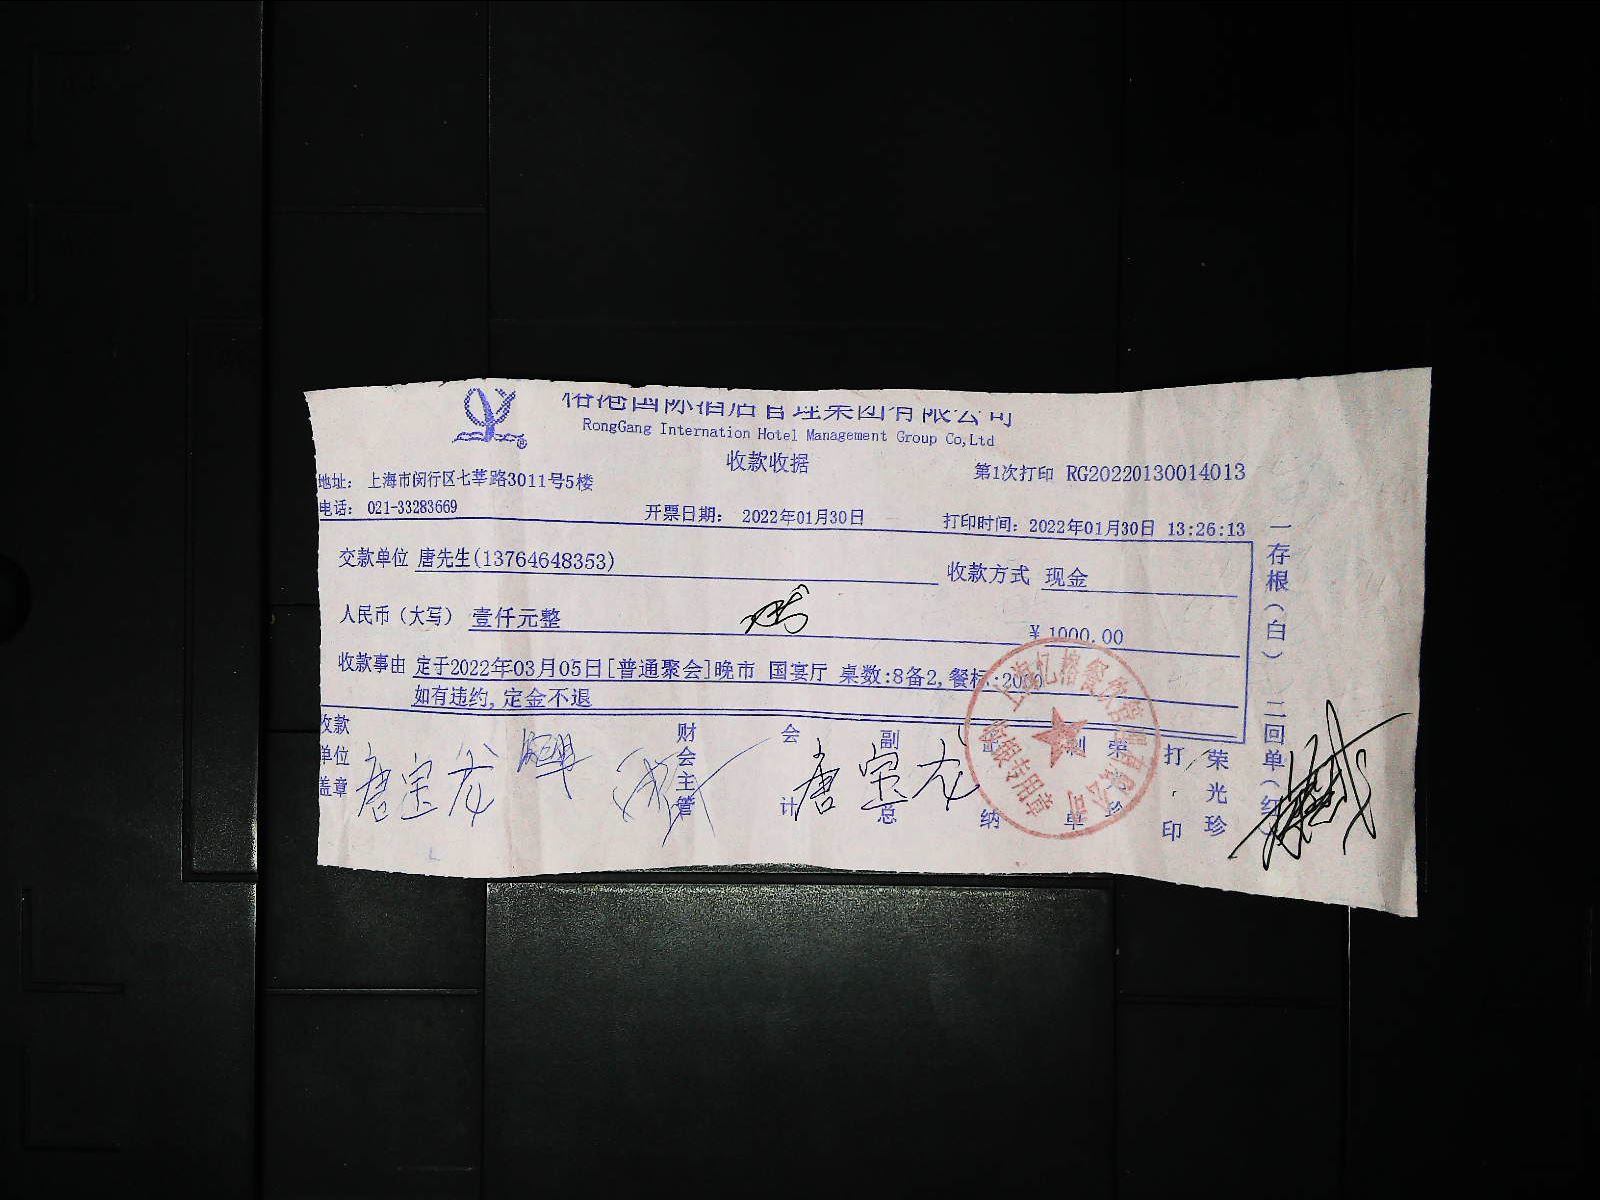 榕港国际酒店管理集团有限公司
RongGang Internation Hotel Management Group Co,Ltd
收款收据
第1次打印 RG20220130014013
地址: 上海市闵行区七莘路3011号5楼
电话: 021-33283669
开票日期: 2022年01月30日
打印时间: 2022年01月30日 13:26:13
交款单位 唐先生(13764648353)
收款方式 现金
人民币(大写) 壹仟元整
¥ 1000.00
收款事由 定于2022年03月05日[普通聚会]晚市 国宴厅 桌数:8备2,餐标:2000
如有违约,定金不退
收款单位盖章
唐宝龙
财会主管
会计
唐宝龙
副总
纳
制单
打印
荣光珍
一存根(白) 二回单(红)